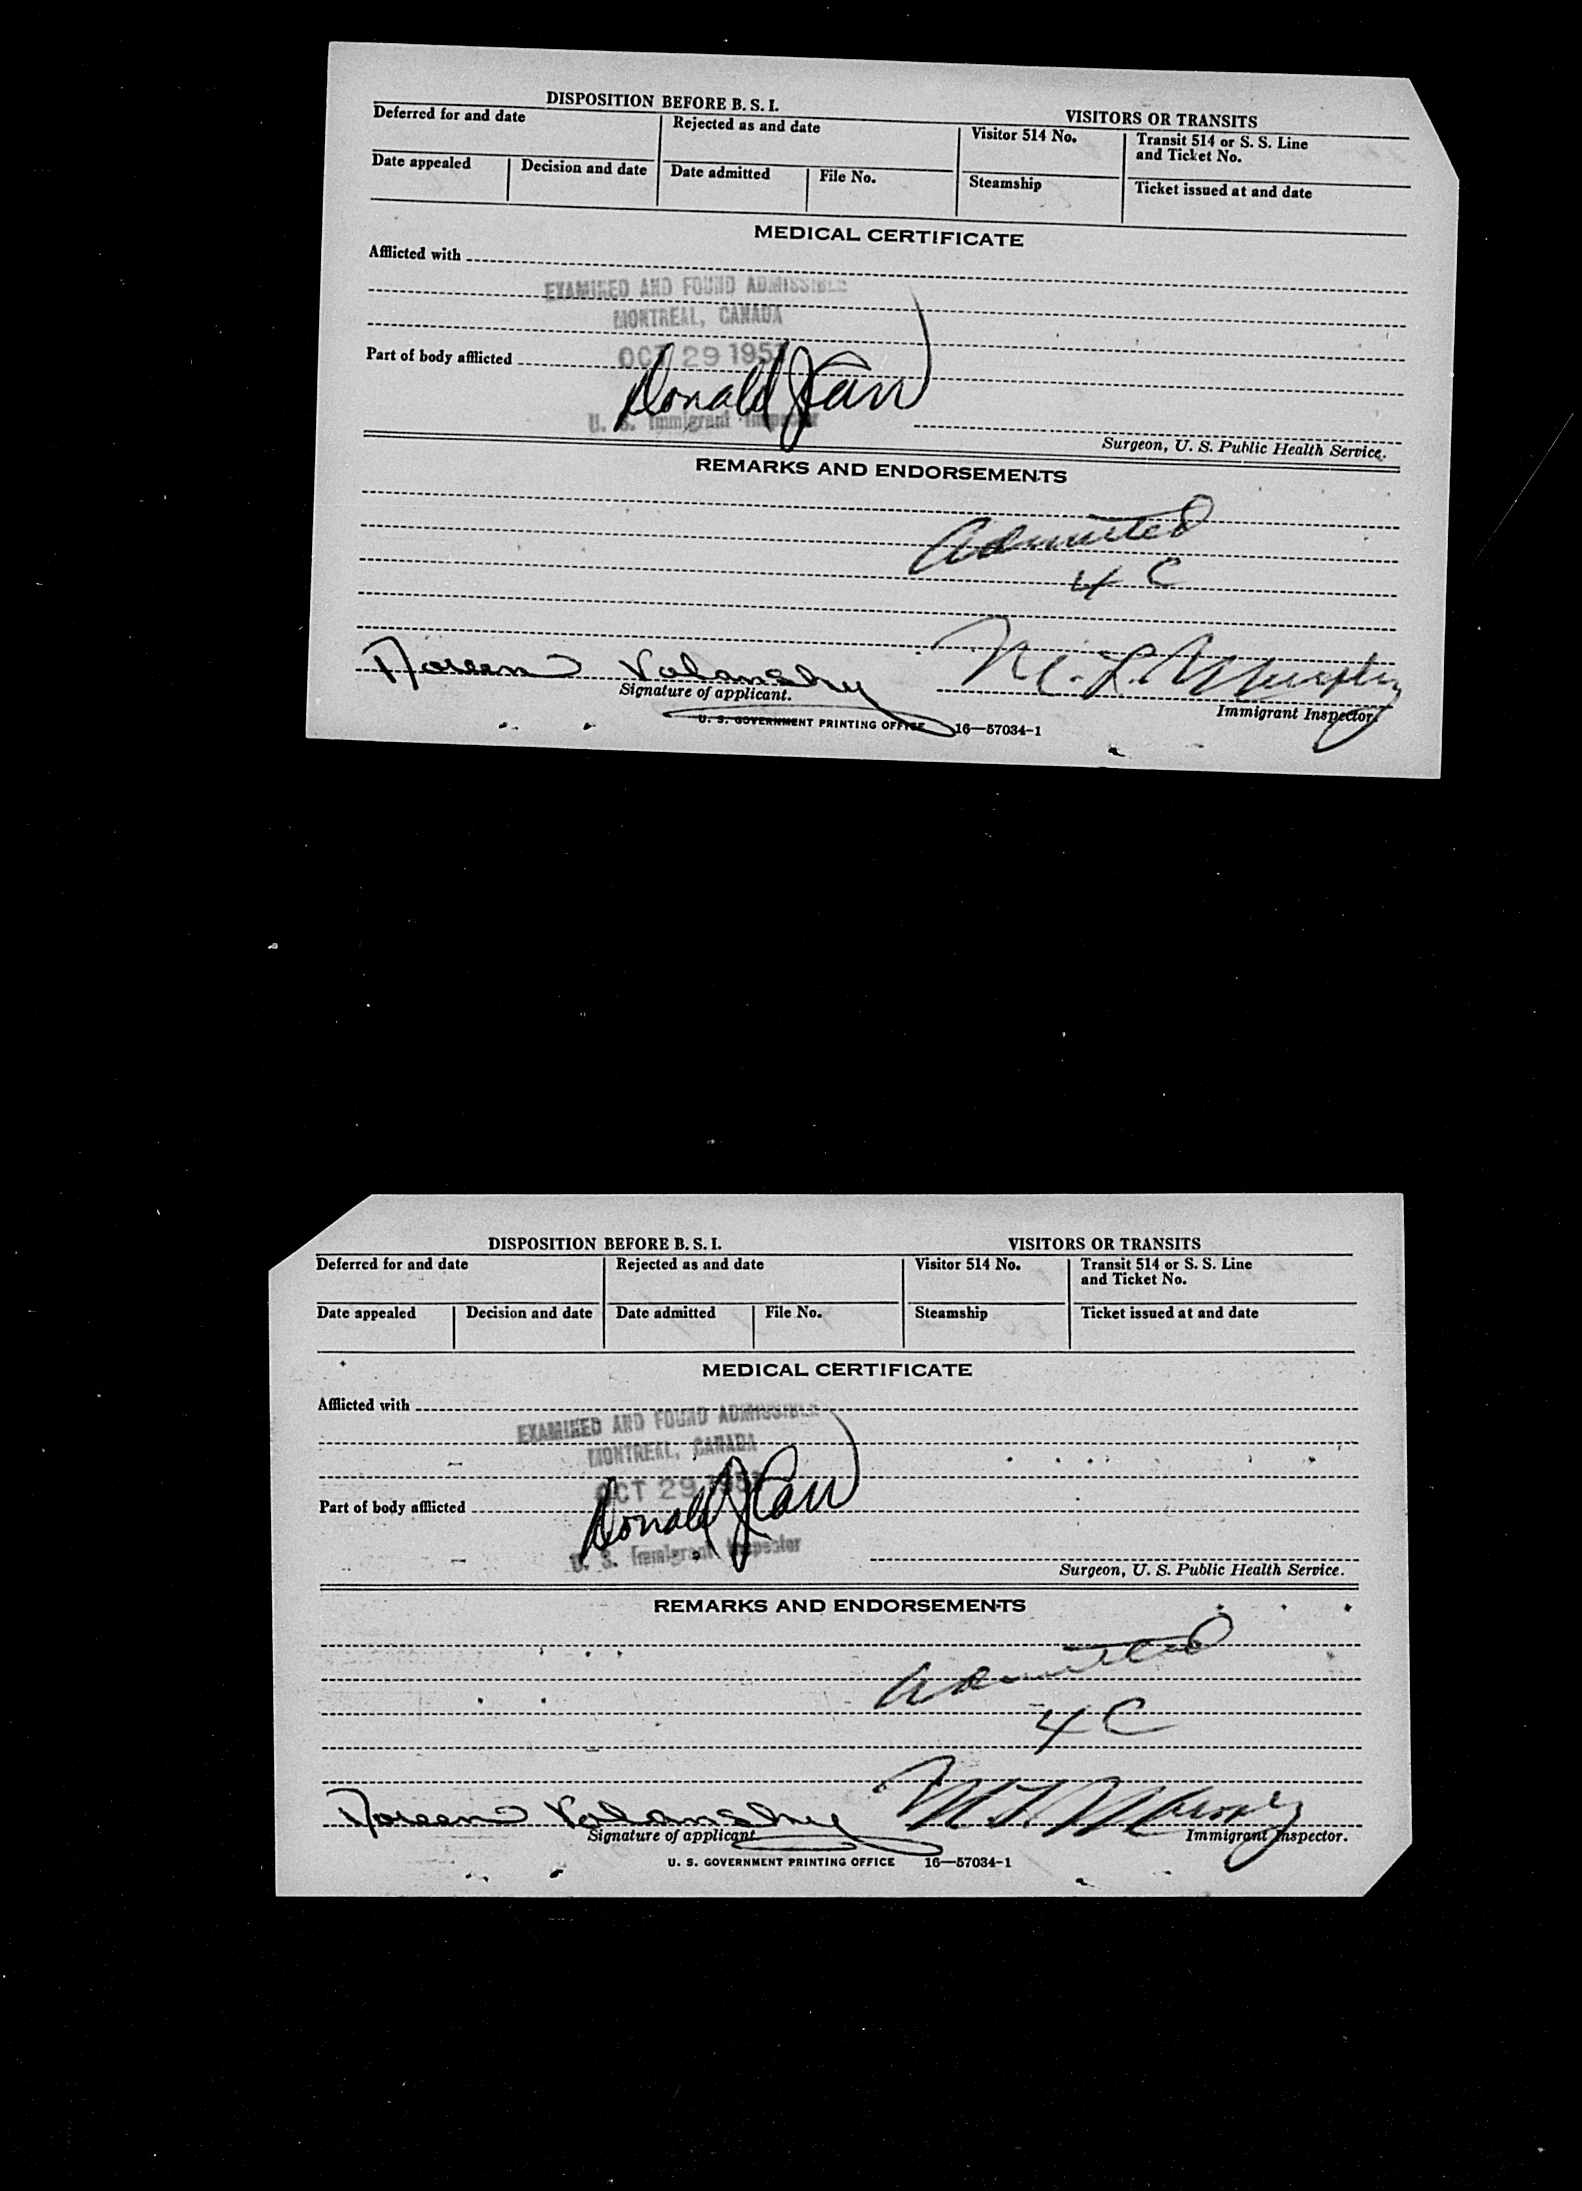 DISPOSITION BEFORE B. S. I.
VISITORS OR TRANSITS
Deferred for and date
Rejected as and date
Visitor 514 No.
Transit 514 or S. S. Line
and Ticket No.
Date appealed
Decision and date
Date admitted
File No.
Steamship
Ticket issued at and date
MEDICAL CERTIFICATE
Afflicted with
EXAMINED AND FOUND ADMISSIBLE
MONTREAL, CANADA
Part of body afflicted
OCT 29 1951
Donald J
U. S. Immigrant Inspector
Surgeon, U. S. Public Health Service.
REMARKS AND ENDORSEMENTS
Admitted
4 C
Noreen Volansky
M. L. Murphy
Signature of applicant.
Immigrant Inspector.
U. S. GOVERNMENT PRINTING OFFICE 16—57034-1
DISPOSITION BEFORE B. S. I.
VISITORS OR TRANSITS
Deferred for and date
Rejected as and date
Visitor 514 No.
Transit 514 or S. S. Line
and Ticket No.
Date appealed
Decision and date
Date admitted
File No.
Steamship
Ticket issued at and date
MEDICAL CERTIFICATE
Afflicted with
EXAMINED AND FOUND ADMISSIBLE
MONTREAL, CANADA
OCT 29 1951
Part of body afflicted
Donald J
U. S. Immigrant Inspector
Surgeon, U. S. Public Health Service.
REMARKS AND ENDORSEMENTS
Admitted
4 C
Noreen Volansky
M L Murphy
Signature of applicant.
Immigrant Inspector.
U. S. GOVERNMENT PRINTING OFFICE 16—57034-1